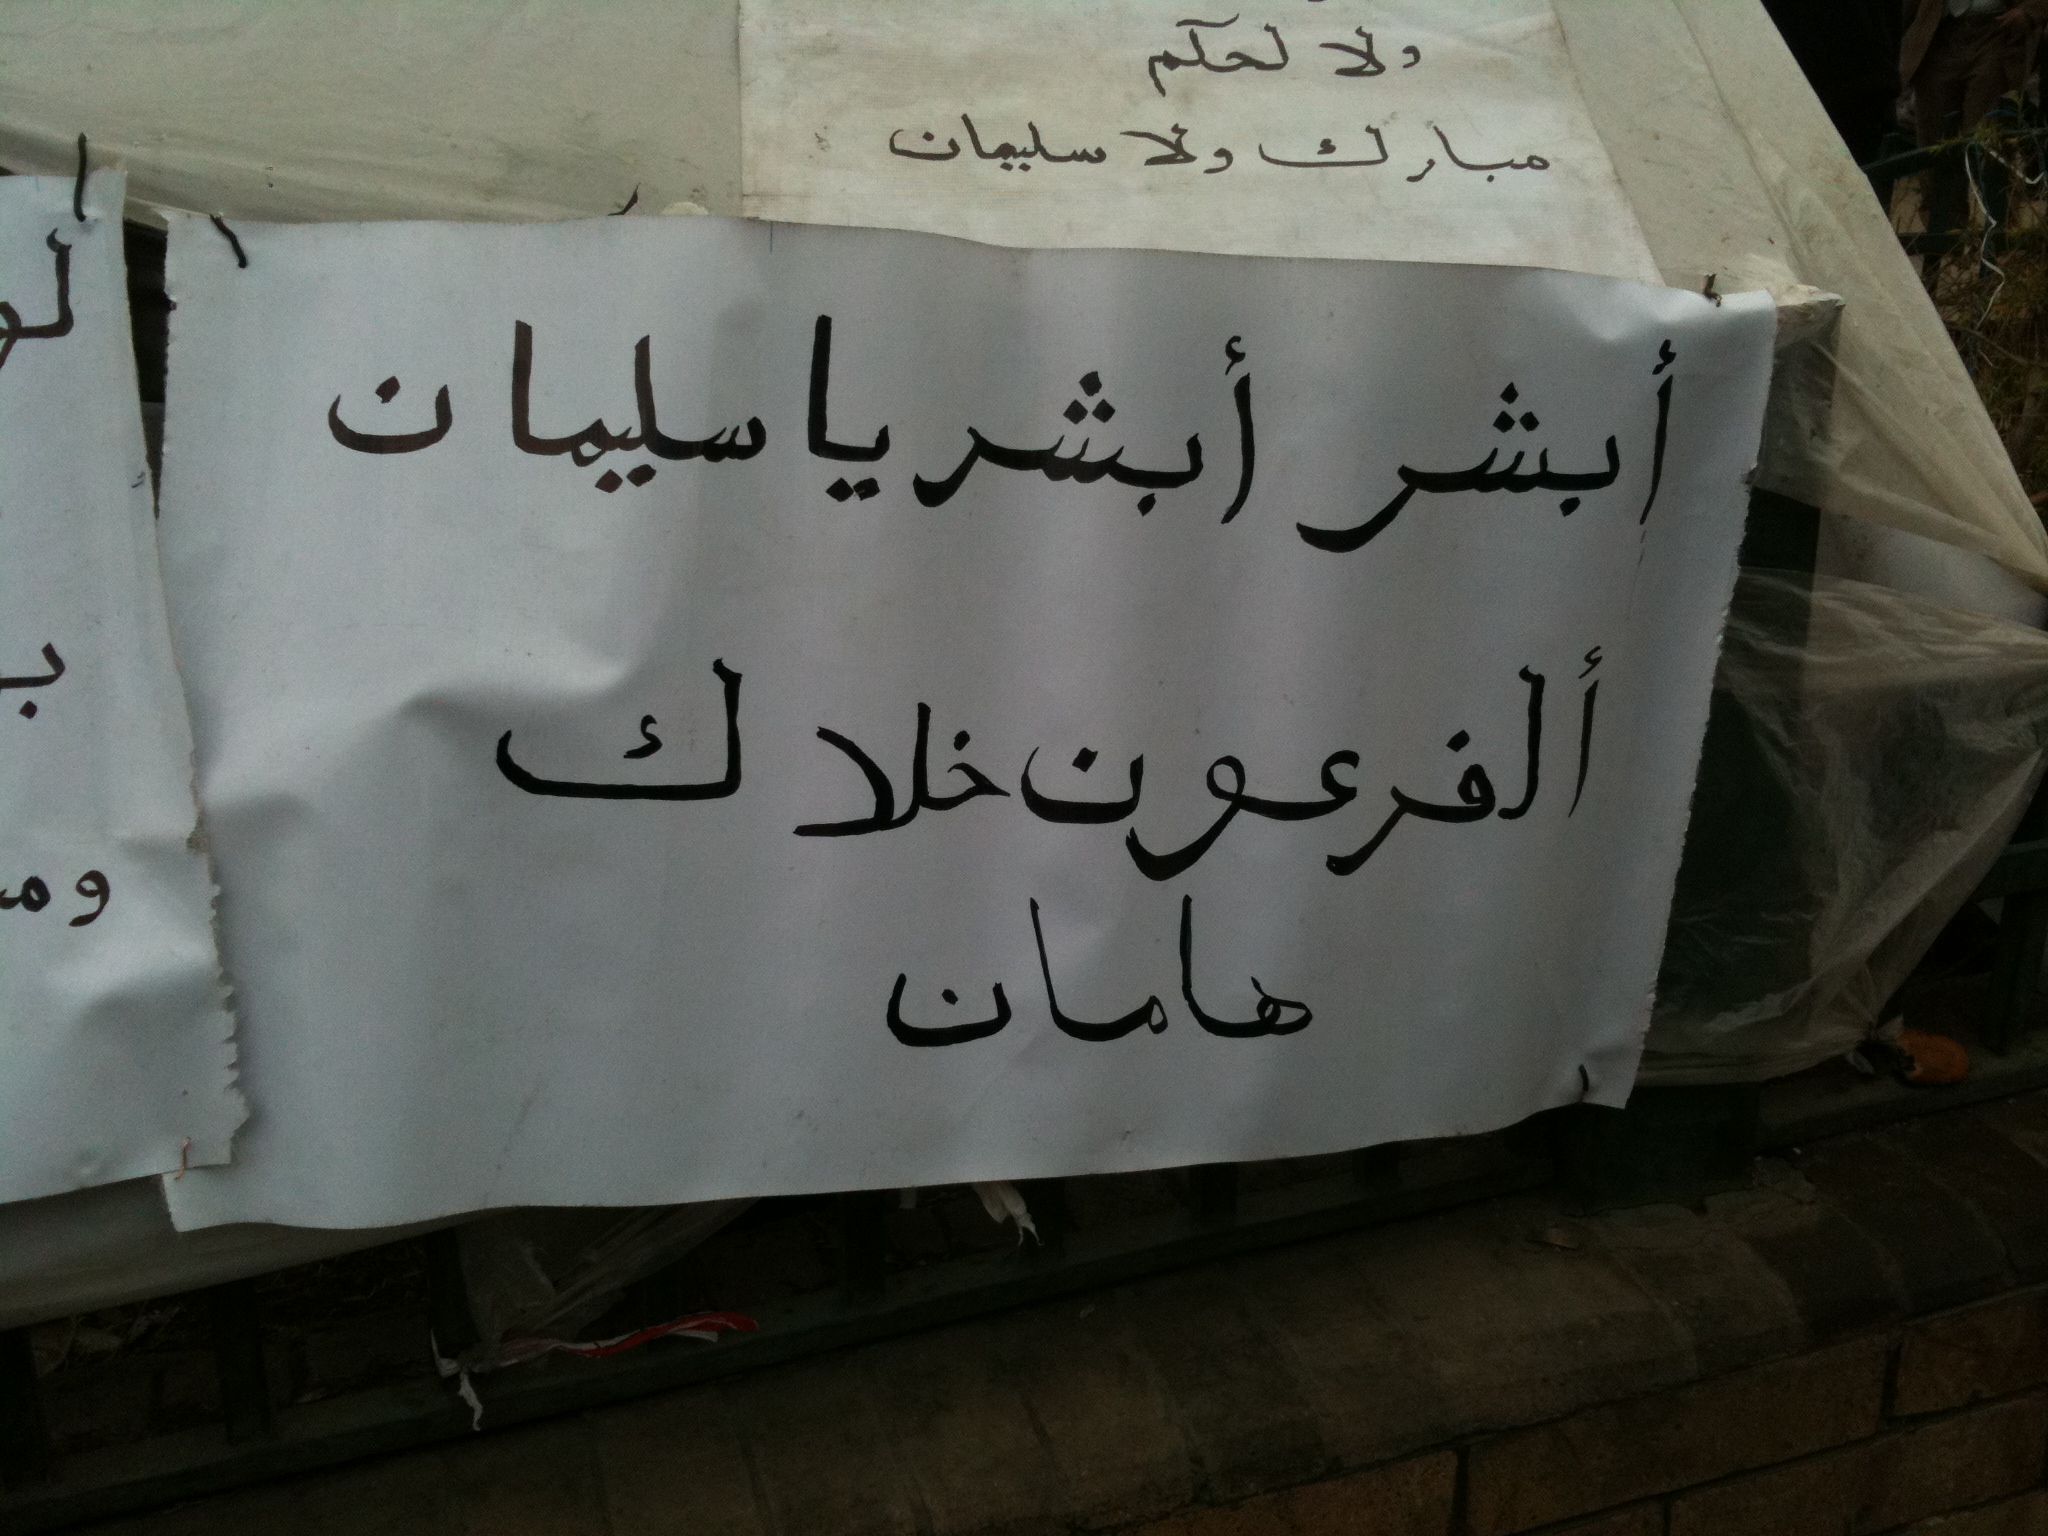 ولا لحكم
مبارك ولا سليمان
أبشر أبشر يا سليمان
ألفرعون خلاك
هامان